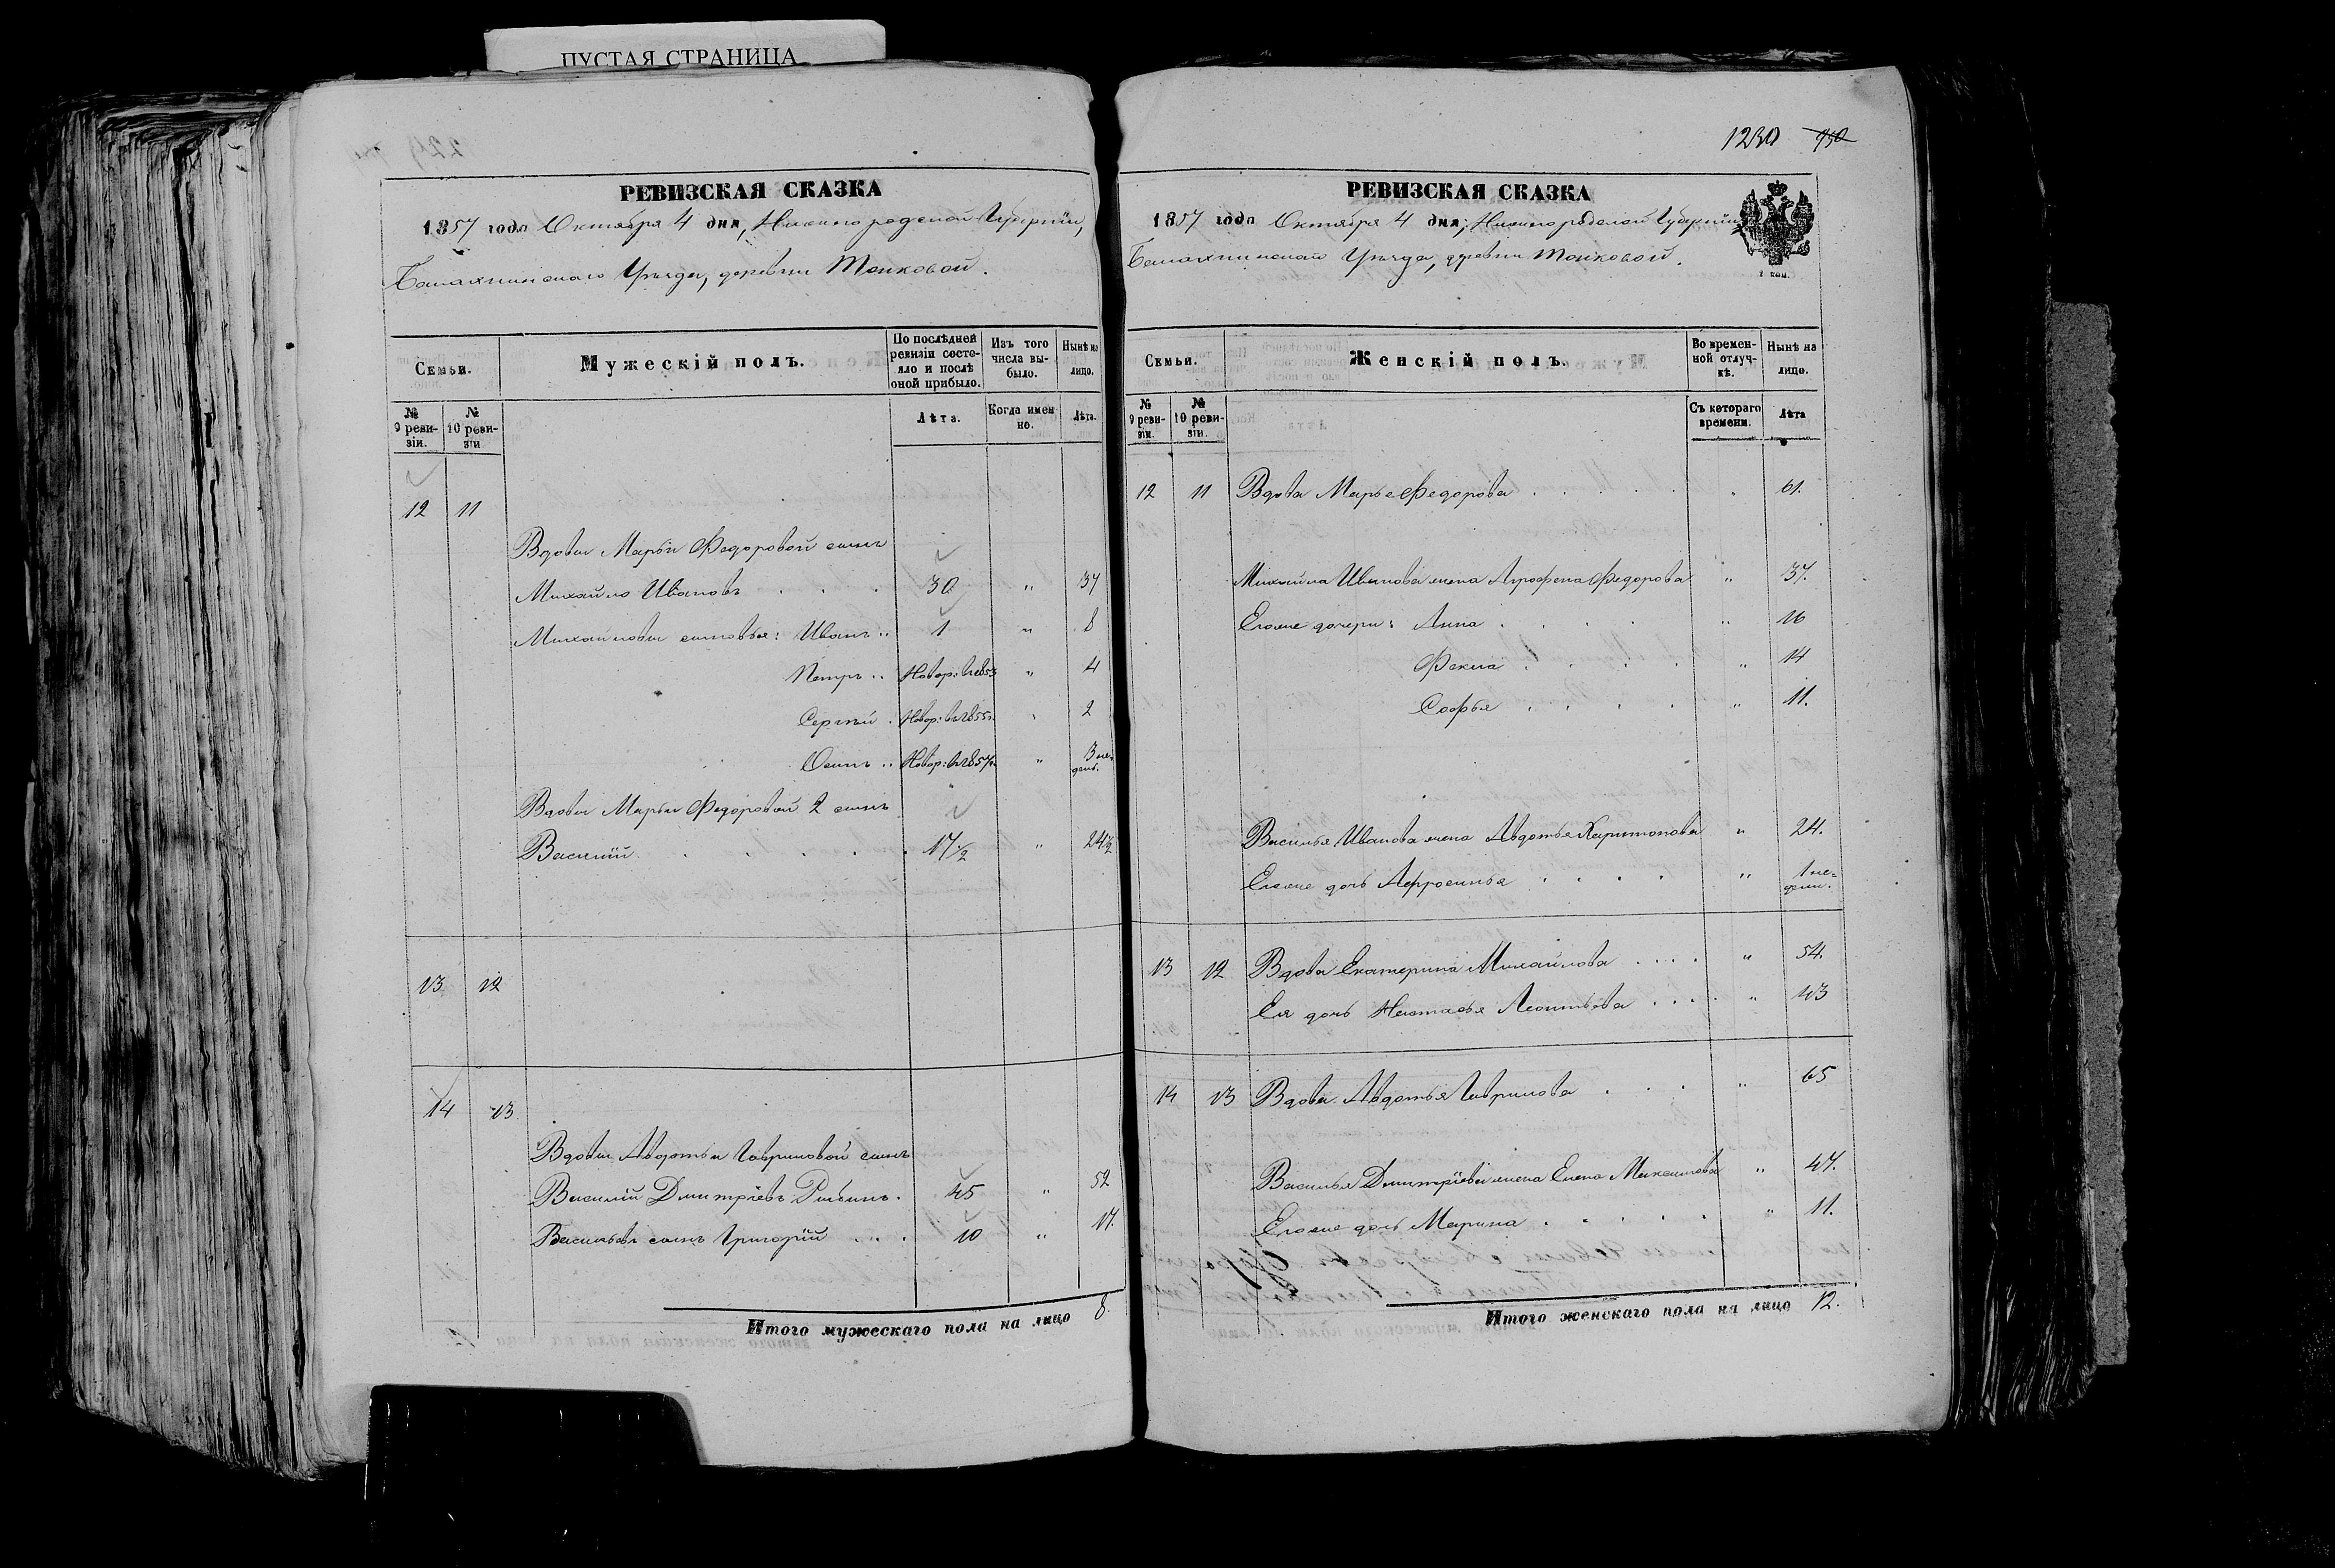 ПУСТАЯ СТРАНИЦА
РЕВИЗСКАЯ СКАЗКА
1857 года Октября 4 дня, Нижегородской Губернiи,
Балахнинскаго Уѣзда, деревни
Семьи.
Мужескій полъ.
По послѣдней ревизіи состояло и послѣ оной прибыло.
Изъ того числа выбыло.
Нынѣ на лицо.
№ 9 ревизіи.
№ 10 ревизіи
Лѣта.
Когда именно.
Лѣта.
12 11
Вдовы Марьи Федоровой сынъ
Михайло Ивановъ . . . 30 " 37
Михайловы сыновья: Иванъ .. 1 " 8
Петръ .. Новор: въ 1853 " 4
Сергѣй . Новор: въ 1855 " 2
Осипъ .. Новор: въ 1857 " 3 недѣл.
Вдовы Марьи Федоровой 2 сынъ
Василій . . . . . 17 1/2 " 24 1/2
13 12
14 13
Вдовы Авдотьи Гавриловой сынъ
Василій Дмитріевъ . 45 " 52
Васильевъ сынъ Григорій . . . 10 " 17.
Итого мужескаго пола на лицо 8.
1230 950
РЕВИЗСКАЯ СКАЗКА
1857 года Октября 4 дня, Нижегородской Губернiи,
Балахнинскаго Уѣзда, деревни
Семьи.
Женскій полъ.
Во временной отлучкѣ.
Нынѣ на лицо.
№ 9 ревизіи.
№ 10 ревизіи.
Съ котораго времени.
Лѣта
12 11 Вдова Марья Федорова . . . . . " 61.
Михайла Иванова жена Агрофена Федорова " 37.
Егоже дочери: Анна . . . . " 16
Фекла . . . . . " 14
Софья . . . . . " 11.
Василья Иванова жена Авдотья Харитонова " 24.
Егоже дочь Афросинья . . . . " 1 недѣли.
13 12 Вдова Екатерина Михайлова . . . . " 54.
Ея дочь Настасья Леонтьева . . . . " 43
14 13 Вдова Авдотья Гаврилова . . . " 65
Василья Дмитріева жена Елена Максимова " 47.
Егоже дочь Марина . . . . . " 11.
Итого женскаго пола на лицо 12.